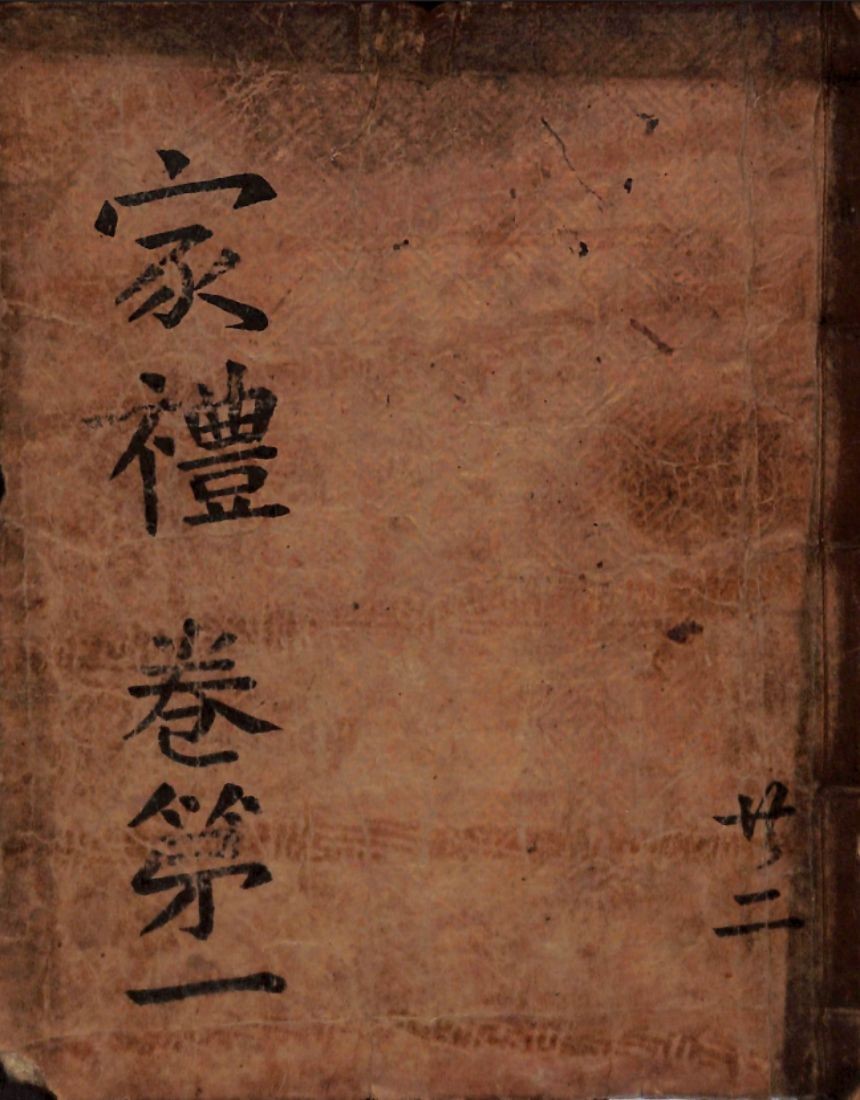 家禮 卷第一
共二